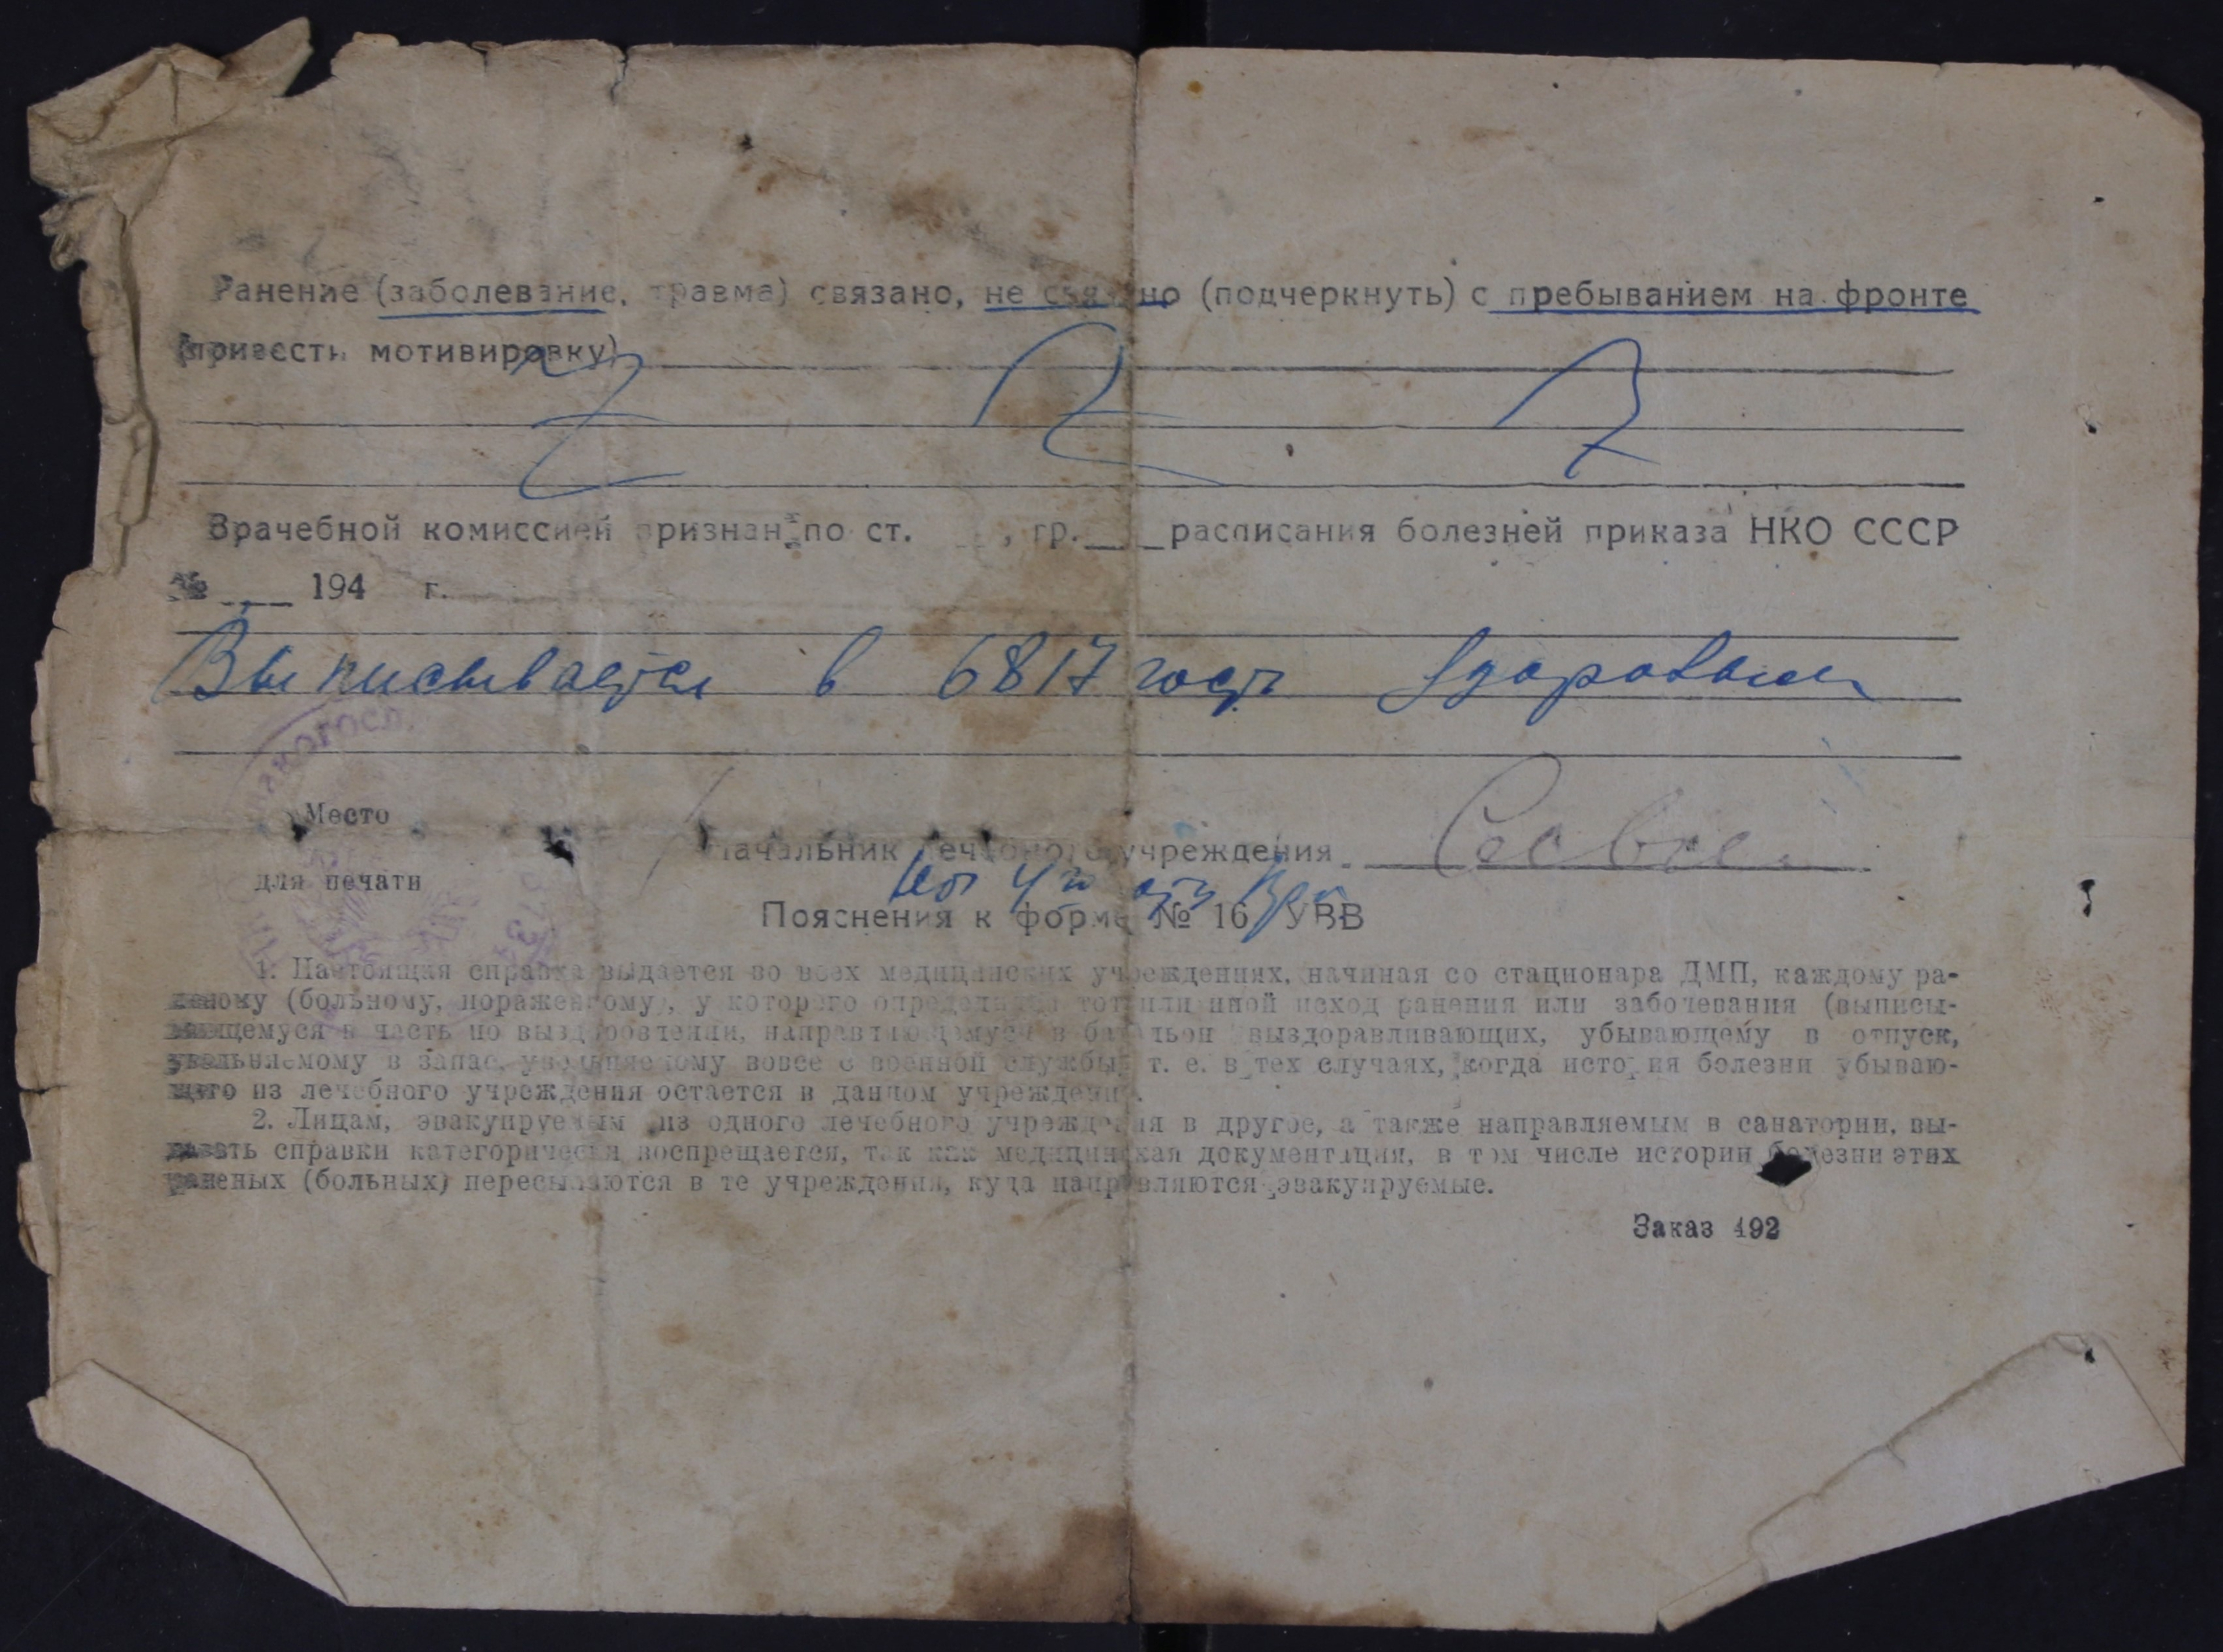 Ранение (заболевание, травма) связано, не связано (подчеркнуть) с пребыванием на фронте
(привести мотивировку)
Врачебной комиссией признан по ст. , гр. расписания болезней приказа НКО СССР
№ 194 г.
Выписывается в 6817 госп здоровым
Место
для печати
Начальник лечебного учреждения
Пояснения к форме № 16 УВВ
1. Настоящая справка выдается во всех медицинских учреждениях, начиная со стационара ДМП, каждому ра-
неному (больному, пораженному), у которого определился тот или иной исход ранения или заболевания (выписы-
вающемуся в часть по выздоровлении, направляющемуся в батальон выздоравливающих, убывающему в отпуск,
увольняемому в запас, увольняемому вовсе с военной службы, т. е. в тех случаях, когда история болезни убываю-
щего из лечебного учреждения остается в данном учреждении.
2. Лицам, эвакуируемым из одного лечебного учреждения в другое, а также направляемым в санатории, вы-
давать справки категорически воспрещается, так как медицинская документация, в том числе истории болезни этих
раненых (больных) пересылаются в те учреждения, куда направляются эвакуируемые.
Заказ 492